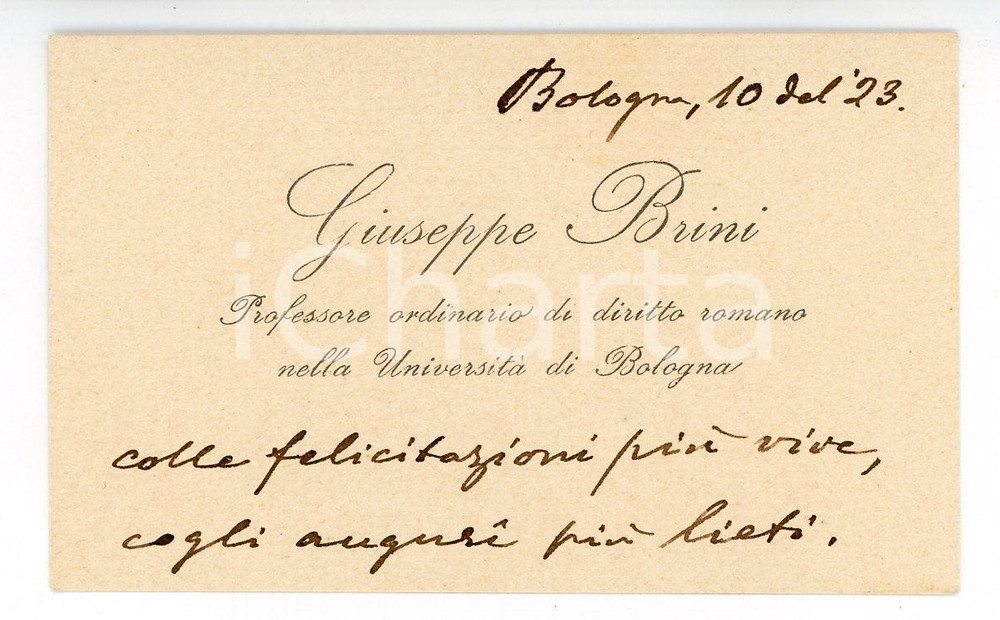 Bologna, 10 del '23.
Giuseppe Brini
iCharta
Professore ordinario di diritto romano
nella Università di Bologna
colle felicitazioni più vive,
cogli augurî più lieti.